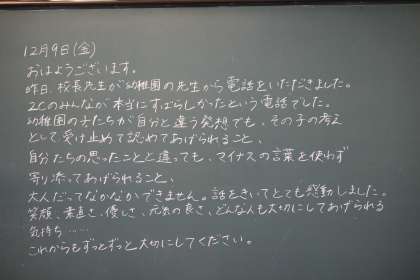 12月9日(金)
おはようございます。
昨日、校長先生が幼稚園の先生から電話をいただきました。
2Cのみんなが本当にすばらしかったという電話でした。
幼稚園の子たちが自分と違う発想でも、その子の考え
として受け止めて認めてあげられること、
自分たちの思ったことと違っても、マイナスの言葉を使わず
寄り添ってあげられること、
大人だってなかなかできません。話をきいてとても感動しました。
笑顔、素直さ、優しさ、元気の良さ、どんな人も大切にしてあげられる
気持ち……
これからもずっとずっと大切にしてください。